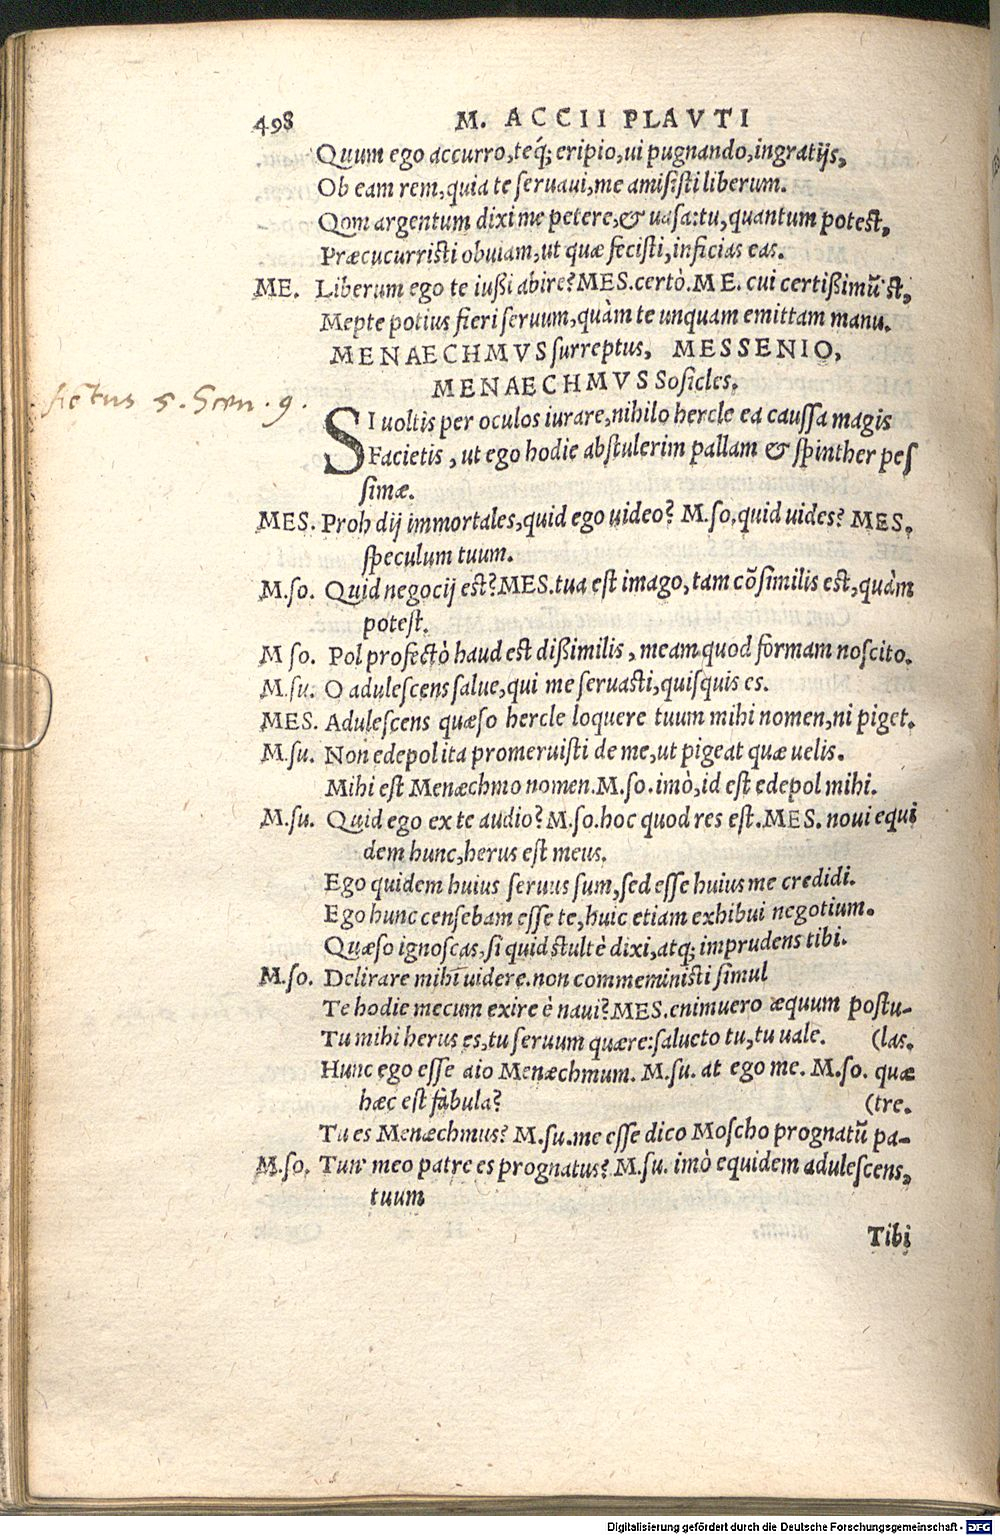 498 M. ACCII PLAVTI
Quum ego accurro, teq́; eripio, ui pugnando, ingratijs,
Ob eam rem, quia te seruaui, me amisisti liberum.
Qom argentum dixi me petere, & uasa: tu, quantum potest,
Præcucurristi obuiam, ut quæ fecisti, inficias eas.
ME. Liberum ego te iußi abire? MES. certò. ME. cui certißimũ'st,
Mepte potius fieri seruum, quàm te unquam emittam manu.
MENAECHMVS surreptus, MESSENIO,
MENAECHMVS Sosicles.
Actus 5. Scen. 9.
SI uoltis per oculos iurare, nihilo hercle ea caussa magis
Facietis, ut ego hodie abstulerim pallam & spinther pes
simæ.
MES. Proh dij immortales, quid ego uideo? M. so. quid uides? MES.
speculum tuum.
M. so. Quid negocij est? MES. tua est imago, tam cõsimilis est, quàm
potest.
M so. Pol profectò haud est dißimilis, meam quod formam noscito.
M. su. O adulescens salue, qui me seruasti, quisquis es.
MES. Adulescens quæso hercle loquere tuum mihi nomen, ni piget.
M. su. Non edepol ita promeruisti de me, ut pigeat quæ uelis.
Mihi est Menæchmo nomen. M. so. imò, id est edepol mihi.
M. su. Quid ego ex te audio? M. so. hoc quod res est. MES. noui equi
dem hunc, herus est meus.
Ego quidem huius seruus sum, sed esse huius me credidi.
Ego hunc censebam esse te, huic etiam exhibui negotium.
Quæso ignoscas, si quid stultè dixi, atq; imprudens tibi.
M. so. Delirare mihi uidere. non commeministi simul
Te hodie mecum exire è naui? MES. enimuero æquum postu-
Tu mihi herus es, tu seruum quære: salueto tu, tu uale. (las.
Hunc ego esse aio Menæchmum. M. su. at ego me. M. so. quæ
hæc est fabula? (tre.
Tu es Menæchmus? M. su. me esse dico Moscho prognatũ pa-
M. so. Tun' meo patre es prognatus? M. su. imò equidem adulescens,
tuum
Tibi
Digitalisierung gefördert durch die Deutsche Forschungsgemeinschaft - DFG